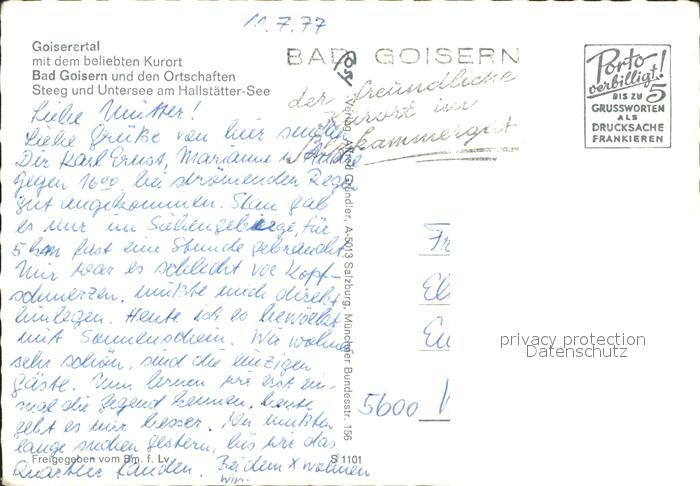 11.7.77
Goiserertal
mit dem beliebten Kurort
Bad Goisern und den Ortschaften
Steeg und Untersee am Hallstätter-See
BAD GOISERN
der freundliche
Kurort im
Salzkammergut
Porto
verbilligt!
BIS ZU 5
GRUSSWORTEN
ALS
DRUCKSACHE
FRANKIEREN
Liebe Mutter!
Liebe Grüße von hier senden
Dir Karl Ernst, Marianne u.
gegen 16°° bei strömenden Regen
gut angekommen. Stau gab
es nur im Siebengebirge, für
5 km fast eine Stunde gebraucht.
Mir war es schlecht vor Kopf-
schmerzen, mußte mich direkt
hinlegen. Heute ist es bewölkt
mit Sonnenschein. Wir wohnen
sehr schön, sind die einzigen
Gäste. Nun lernen wir erst ein-
mal die Gegend kennen, heute
geht es mir besser. Wir mußten
lange suchen gestern, bis wir das
Quartier fanden. Bei dem X wohnen
wir.
Verlag Alfred Gründler, A-5013 Salzburg, Münchner Bundesstr. 156
Fr
El
Eu
5600 W
privacy protection
Datenschutz
Freigegeben vom Bm. f. Lv.
S 1101